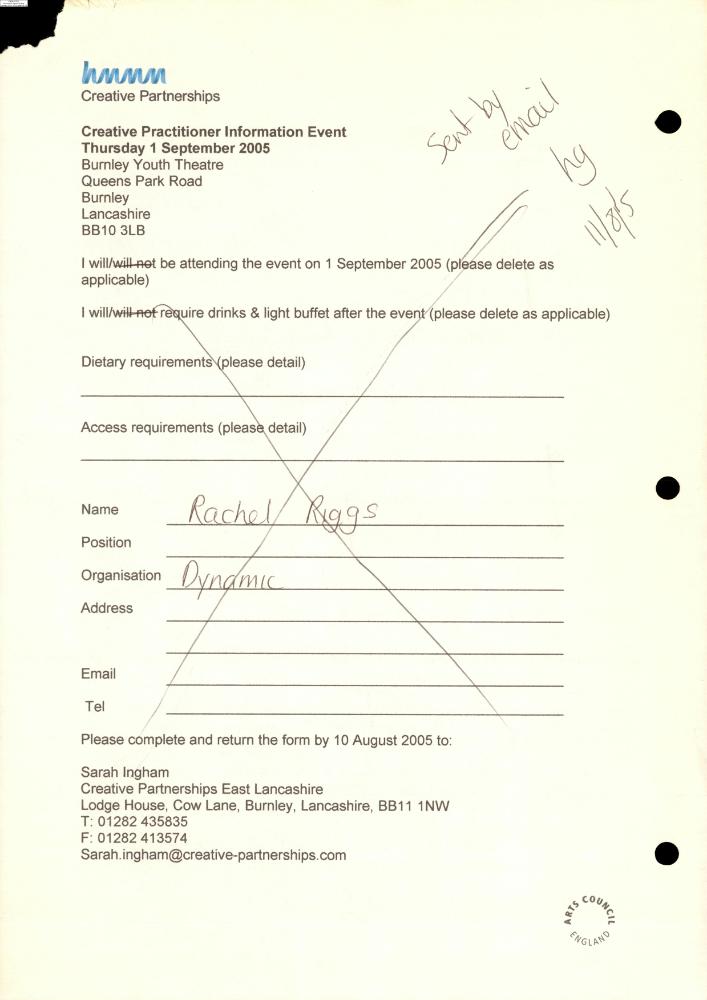 Creative Partnerships
Sent by
email
hg
11/8/5
Creative Practitioner Information Event
Thursday 1 September 2005
Burnley Youth Theatre
Queens Park Road
Burnley
Lancashire
BB10 3LB
I will/will not be attending the event on 1 September 2005 (please delete as
applicable)
I will/will not require drinks & light buffet after the event (please delete as applicable)
Dietary requirements (please detail)
Access requirements (please detail)
Name Rachel Riggs
Position
Organisation Dynamic
Address
Email
Tel
Please complete and return the form by 10 August 2005 to:
Sarah Ingham
Creative Partnerships East Lancashire
Lodge House, Cow Lane, Burnley, Lancashire, BB11 1NW
T: 01282 435835
F: 01282 413574
Sarah.ingham@creative-partnerships.com
ARTS COUNCIL
ENGLAND